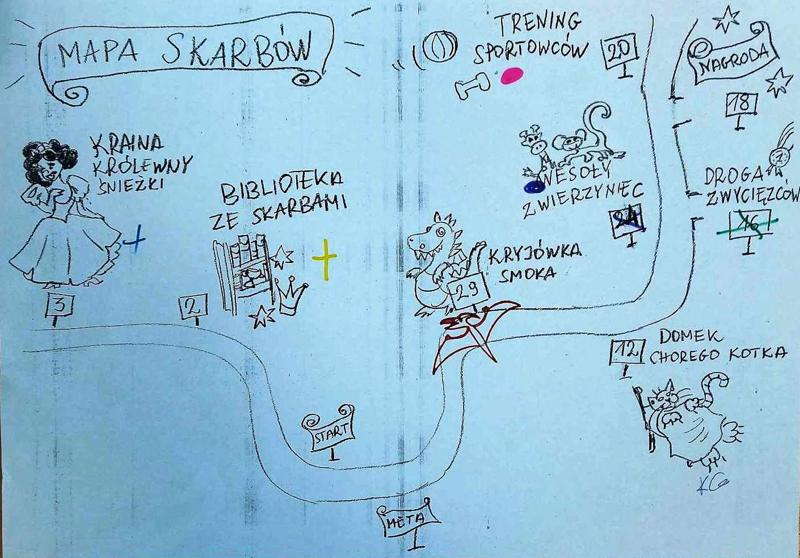 MAPA SKARBÓW
TRENING
SPORTOWCÓW
20
NAGRODA
18
KRAINA
KRÓLEWNY
ŚNIEŻKI
3
BIBLIOTEKA
ZE SKARBAMI
2
WESOŁY
ZWIERZYNIEC
DROGA
ZWYCIĘZCÓW
1
16
KRYJÓWKA
SMOKA
29
12
DOMEK
CHOREGO KOTKA
START
META